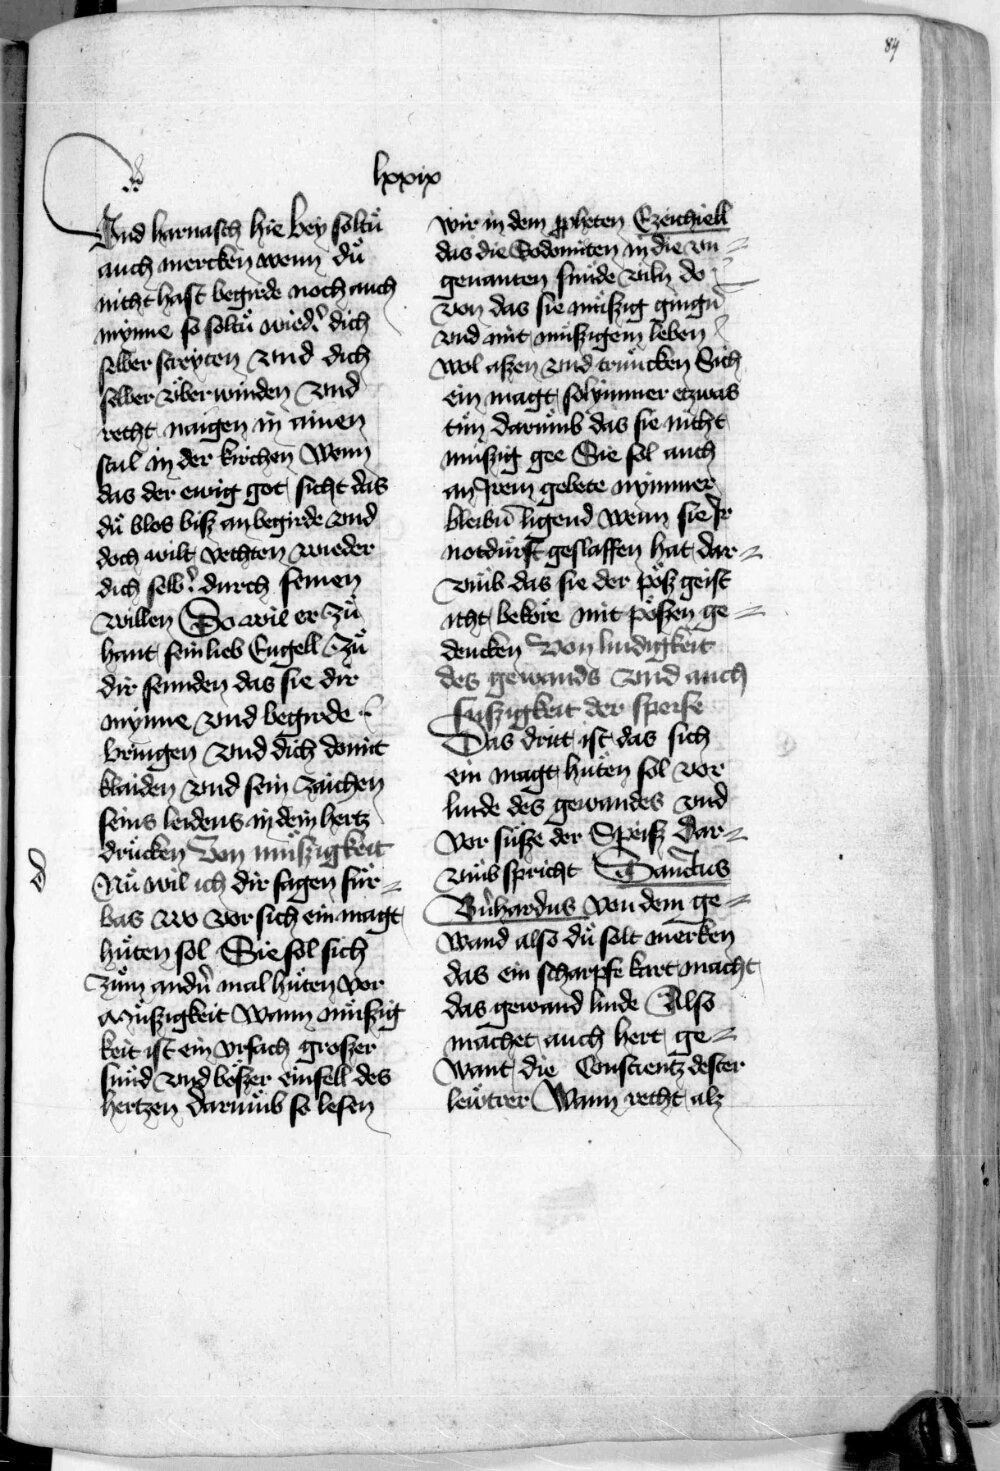 84
lxxix
Vnd harnasch hie bey soltu̇
auch mercken wenn du̇
nicht hast begirde noch auch
mynne so soltu̇ wied' dich
selber streyten vnd dich
selber u̇berwinden vnd
recht naigen in ainen
stul in der kirchen Wenn
das der ewig got sicht das
du̇ blos bist an begirde vnd
doch wilt vechten wieder
dich selb' durch seinen
willen So wil er zu̇
hant sein lieb Engell zu̇
dir sennden das sie dir
mynne vnd begirde
bringen vnd dich domit
klaiden vnd sein zaichen
seins leidens in dein hertz
dru̇cken Von mu̇szigkeit
Nu̇ wil ich dir sagen fu̇r=
bas wo vor sich ein magt
hu̇ten sol Sie sol sich
zu̇m andn̄ mal hu̇ten vor
mu̇szigkeit Wann mu̇szig
keit ist ein vrsach groszer
su̇nd vnd bo̊szer einfell des
hertzen daru̇mb so lesen
wir in dem ppheten Ezechiell
das die Sodomiten in die vn=
genanten su̇nde viln do
von das sie mu̇szig gingn̄
vnd mit mu̇szigem leben
wol aszen vnd truncken Sich
ein magt sol ymmer etzwas
tu̇n daru̇mb das sie nicht
mu̇szig gee Sie sol auch
an Irem gebete nymmer
bleibn̄ ligend wenn sie Ir
notdu̇rft geslaffen hat dar=
vmb das sie der po̊sz geist
icht bekȯre mit po̊szen ge=
dencken Von lindigkeit
des gewands vnd auch
suszigkeit der speise
Das dritt ist das sich
ein magt hu̇ten sol vor
linde des gewandes vnd
vor su̇sze der Speisz Dar=
vmb spricht Sanctus
Bn̄hardus von dem ge=
wand also du̇ solt merken
das ein scharpfe kart macht
das gewand linde Also
machet auch hert ge=
want die Conscientz dester
lewtrer Wann recht alz
d